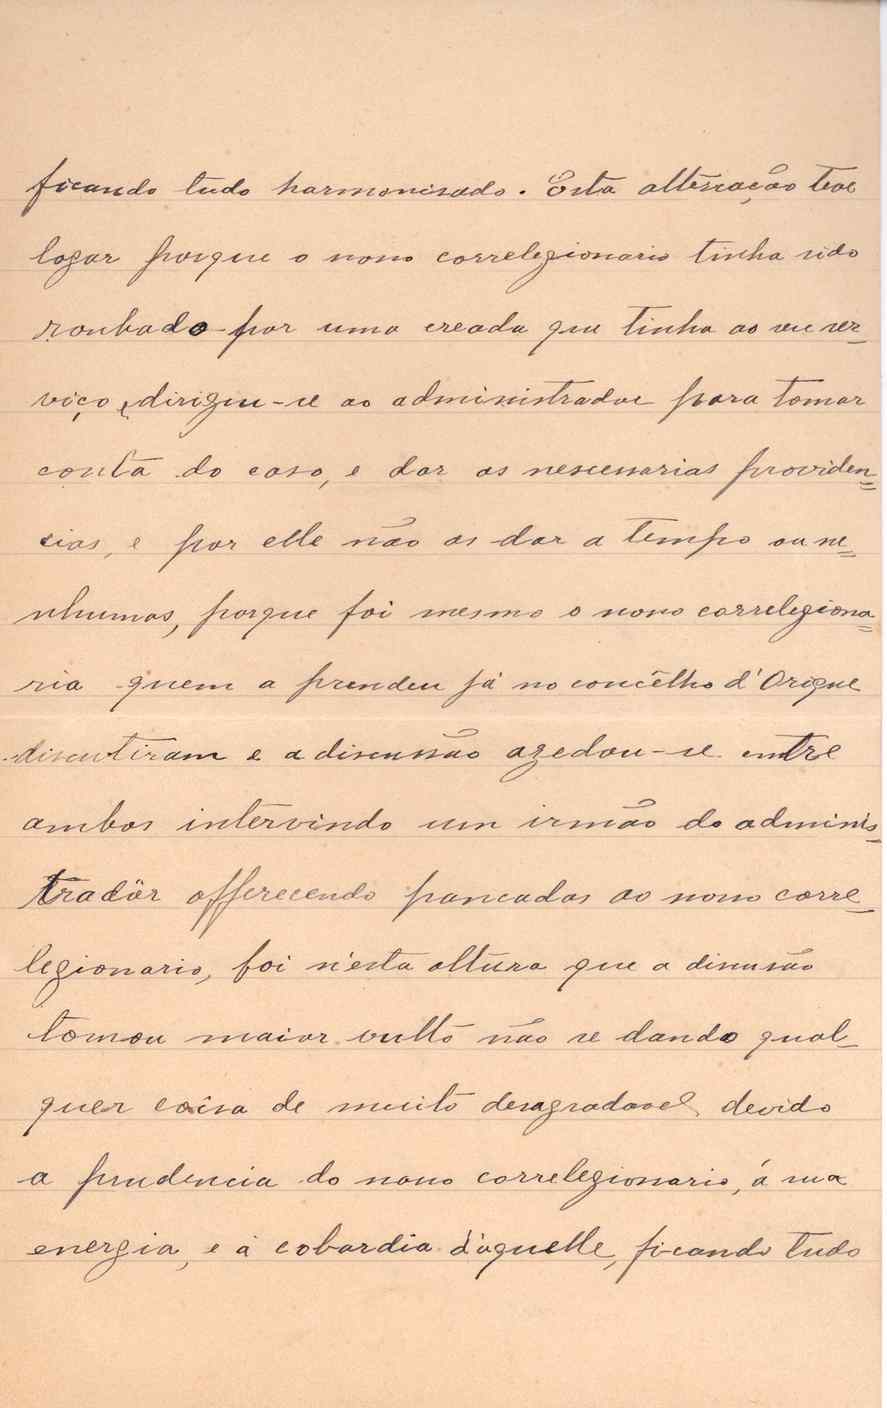 ficando tudo harmonisado. Esta altercação teve
logar porque o nosso correlegionario tinha sido
roubado por uma creada que tinha ao seu ser-
viço, dirigiu-se ao administrador para tomar
conta do caso, e dar as nescessarias providen=
cias, e por elle não as dar a tempo ou ne=
nhumas, porque foi mesmo o nosso correlegiona=
rio quem a prendeu já no concêlho d'Orique
discutiram e a discussão azedou-se entre
ambos intervindo um irmão do adminis=
tradôr offerecendo pancadas ao nosso corre-
legionario, foi n'esta altura que a discusão
tomou maior vulto não se dando qual-
quer coisa de muito desagradavel, devido
a prudencia do nosso correlegionario, á sua
energia, e á cobardia d'aquelle, ficando tudo